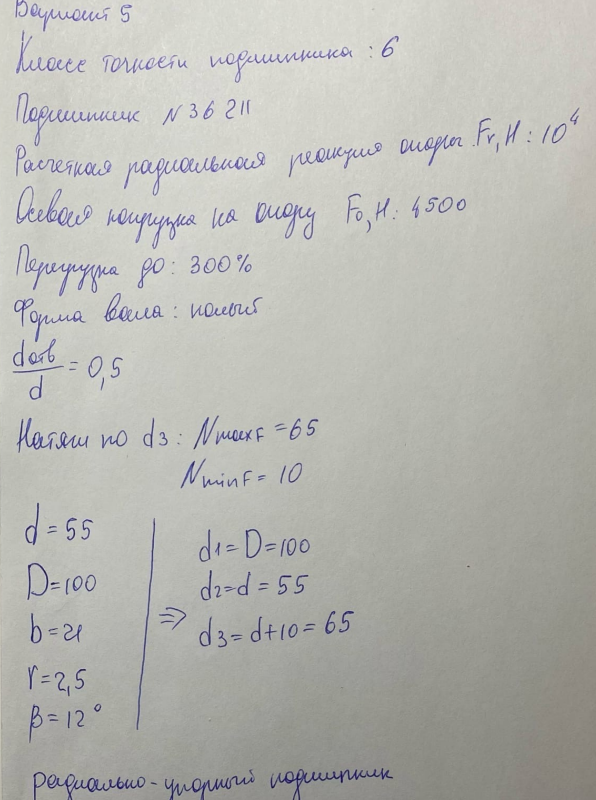 Вариант 5
Класс точности подшипника : 6
Подшипник N 36 211
Расчетная радиальная реакция опоры Fr, H : 10⁴
Осевая нагрузка на опору Fo, H : 4500
Перегрузка до : 300%
Форма вала : полый
dотв/d = 0,5
Натяг по d3 : NmaxF = 65
NminF = 10
d = 55
D=100
b = 21
r = 2,5
β = 12°
=>
d1 = D = 100
d2 = d = 55
d3 = d+10 = 65
радиально-упорный подшипник